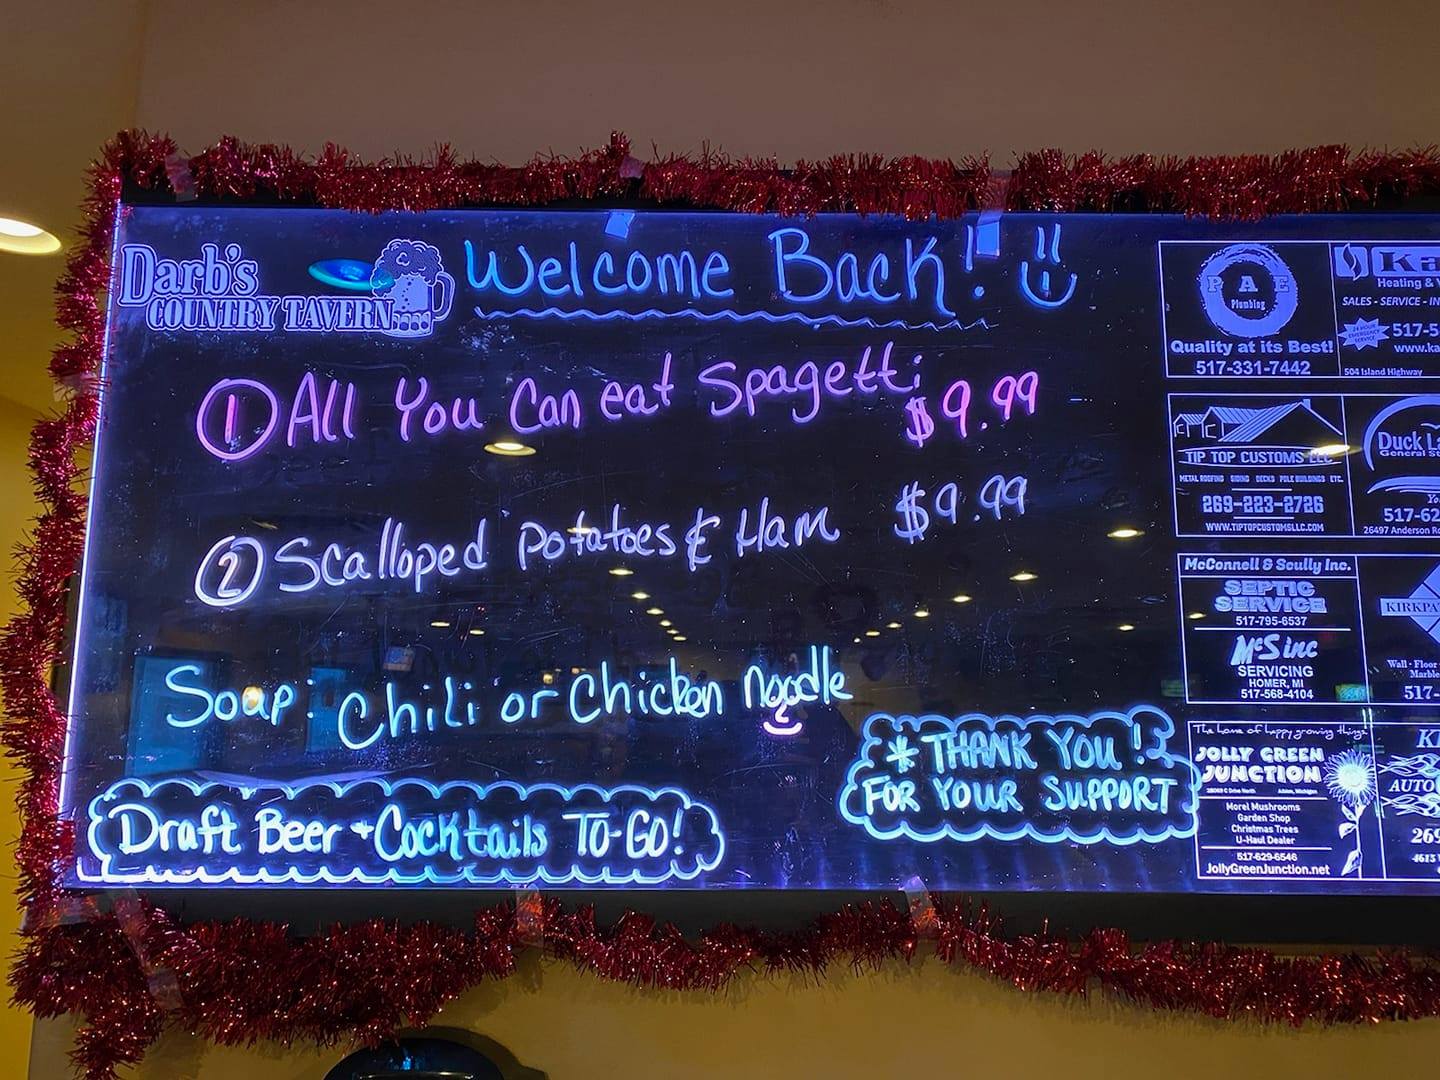 Darb's
COUNTRY TAVERN
Welcome Back!
1 All You Can eat Spagetti
$9.99
2 Scalloped Potatoes & Ham $9.99
Soup: Chili or Chicken Noodle
Draft Beer + Cocktails TO-GO!
* THANK YOU!
FOR YOUR SUPPORT
P A E
Plumbing
Quality at its Best!
517-331-7442
Ka
Heating & V
SALES - SERVICE - IN
24 HOUR
EMERGENCY
SERVICE
517-5
www.ka
504 Island Highway
TIP TOP CUSTOMS LLC
METAL ROOFING SIDING DECKS POLE BUILDINGS ETC.
269-223-2726
WWW.TIPTOPCUSTOMSLLC.COM
Duck La
General St
Yo
517-62
26497 Anderson Ro
McConnell & Scully Inc.
SEPTIC
SERVICE
517-795-6537
McS inc
SERVICING
HOMER, MI
517-568-4104
KIRKPA
Wall · Floor
Marble
517-
The home of happy growing things
JOLLY GREEN
JUNCTION
Morel Mushrooms
Garden Shop
Christmas Trees
U-Haul Dealer
517-629-6546
JollyGreenJunction.net
AUTO
269
4615